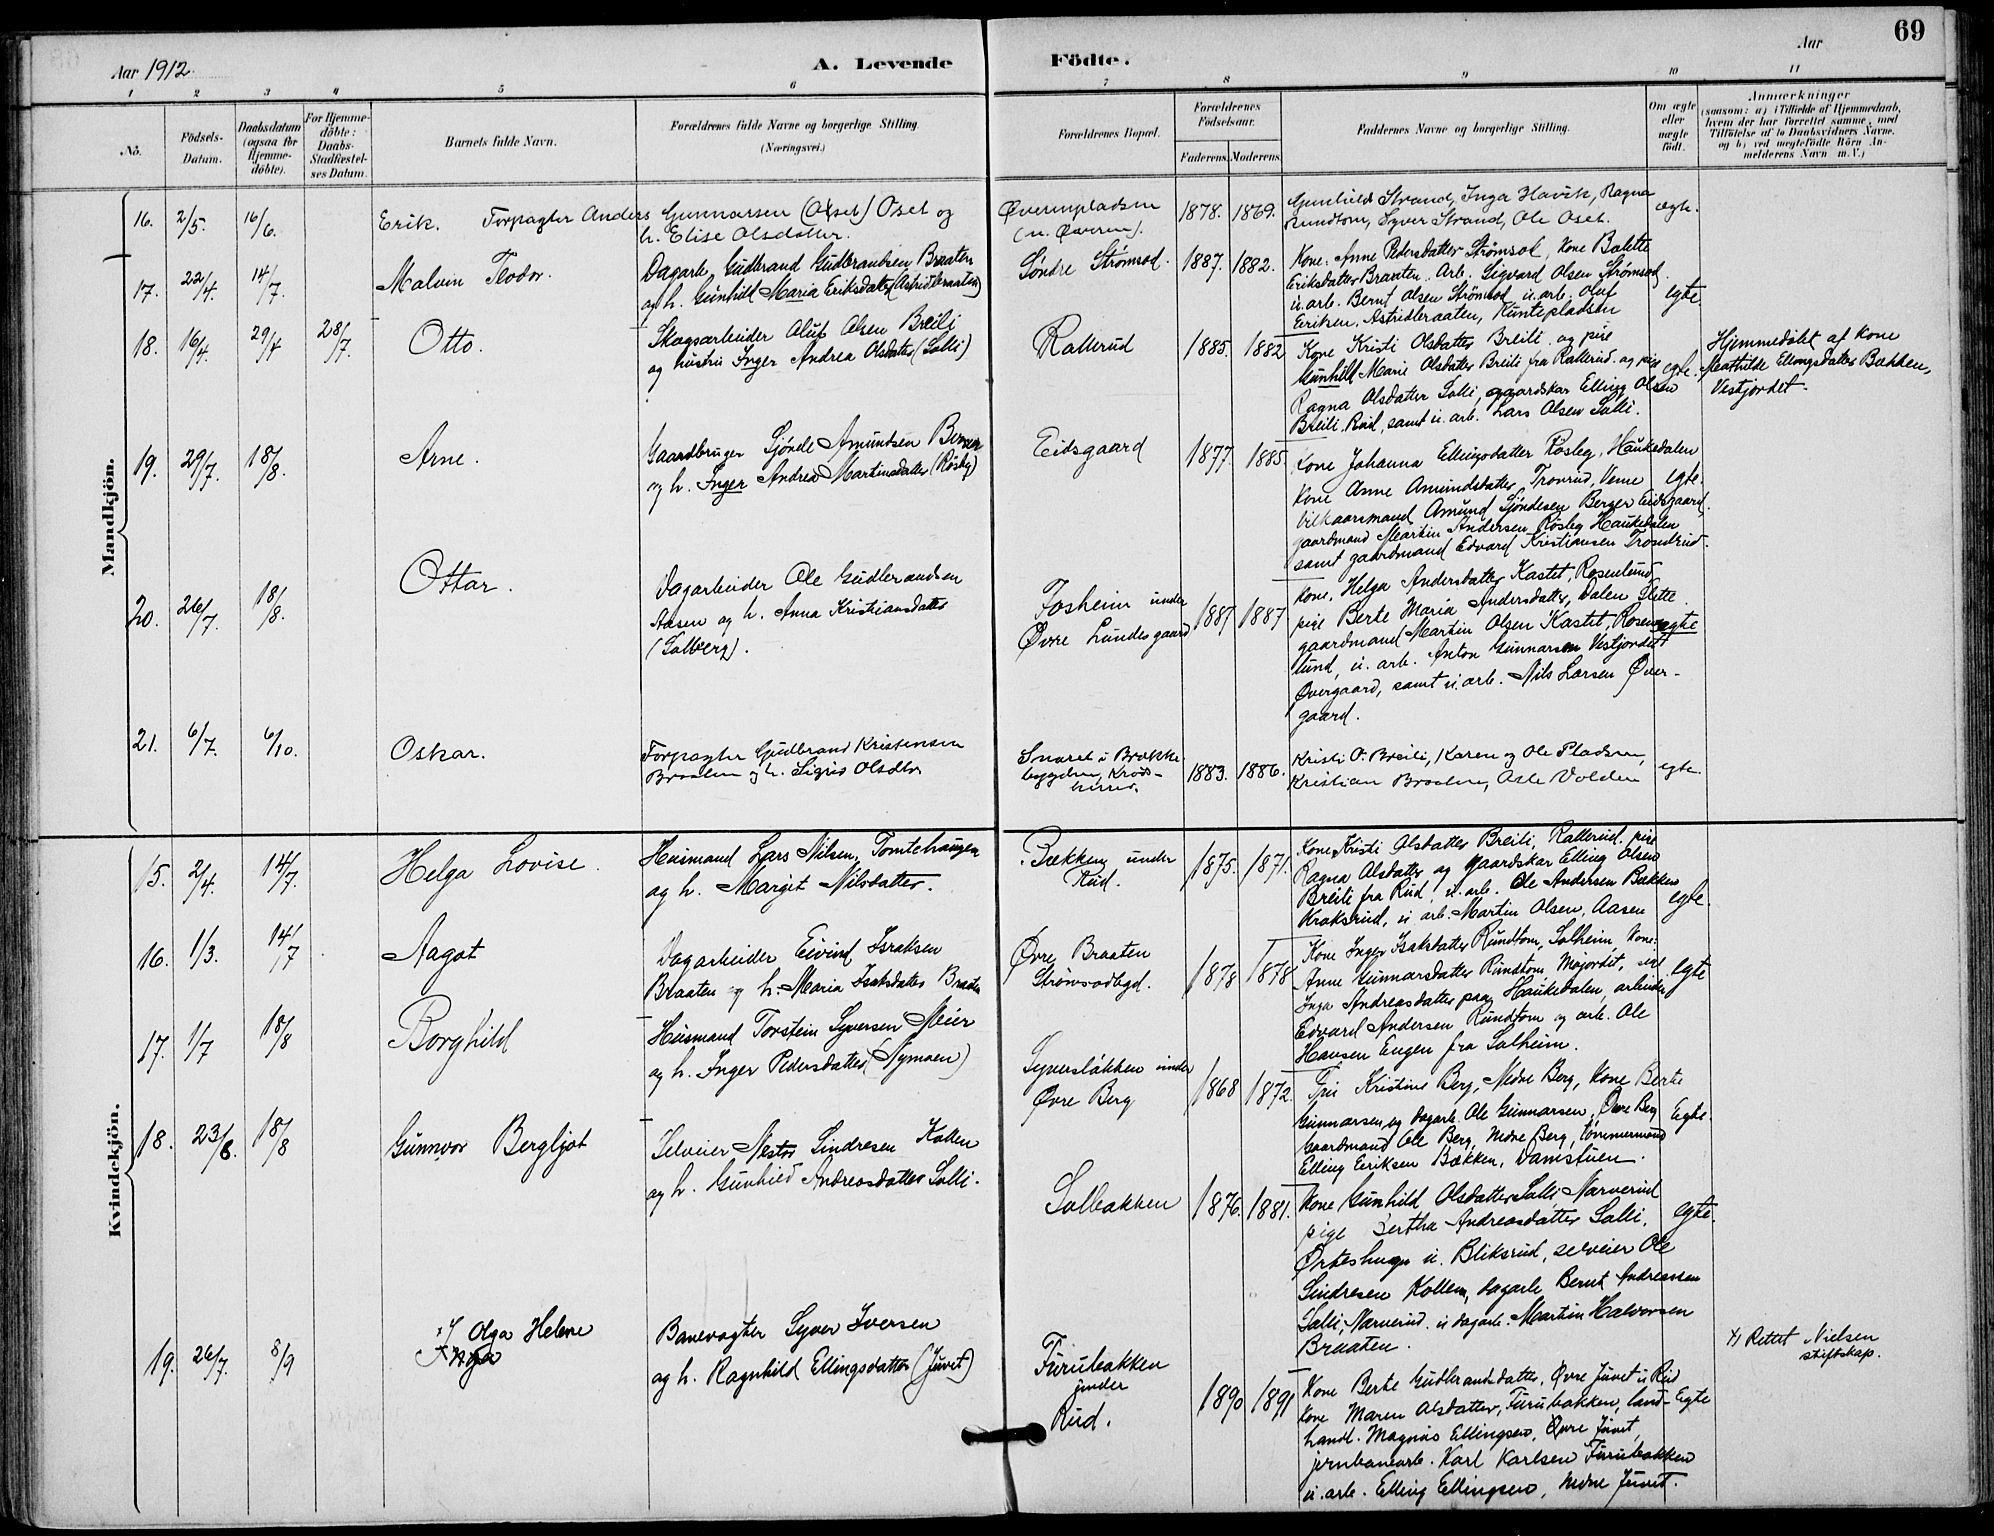 69
Aar 1912.
A. Levende Födte.
Aar
1 2 3 4 5 6 7 8 9 10 11
No.
Födsels-Datum.
Daabsdatum (ogsaa for Hjemme-döbte).
For Hjemme-döbte: Daabs-Stadfæstel-ses Datum.
Barnets fulde Navn.
Forældrenes fulde Navne og borgerlige Stilling.
(Næringsvei.)
Forældrenes Bopæl.
Forældrenes Födselsaar.
Faderens. Moderens.
Faddernes Navne og borgerlige Stilling.
Om ægte eller uægte födt.
Anmærkninger
(saasom: a) i Tilfælde af Hjemmedaab, hvem der har forrettet samme, med Tilföielse af to Daabsvidners Navne. og b) ved uægtefödte Börn An-melderens Navn m. V.)
Mandkjön.
16. 2/5. 16/6. Erik. Forpagter Anders Gunnarsen (Oset) Oset og
h. Elise Olsdatter.
Øverenpladsen
(u. Øveren).
1878. 1869.
Gunhild Strand, Inga Havik, Ragna
Rundtom, Syver Strand, Ole Oset.
ægte.
17. 22/4. 14/7. Malvin Teodor.
Dagarb. Gudbrand Gudbrandsen Braaten
og h. Gunhild Maria Eriksdatter (Astridbraaten)
Söndre Strømsod. 1887. 1882.
Kone: Anne Pedersdatter Strømsod, Kone Bolette
Eriksdatter Braaten. Arb. Sigvard Olsen Strømsod,
u. arb. Bernt Olsen Strømsod, u. arb. Oluf
Eriksen, Astridbraaten, Kuntepladsen
egte.
18. 16/4. 29/7 28/7. Otto.
Skogsarbeider Oluf Olsen Breili
og hustru Inger Andrea Olsdatter (Solli)
Rallerud 1885. 1882
Kone Kristi Olsdatter Breili og pige
Gunhild Marie Olsdatter Breili fra Rallerud og pige
Ragna Olsdatter Solli, gaardskar Elling Olsen
Breili, Rud, samt u. arb. Lars Olsen Solli.
egte.
Hjemmedøbt af kone
Mathilde Ellingsdatter Bækken,
Vestjordet.
19. 29/7. 18/8. Arne.
Gaardbruger Sjöndl Amundsen Berger
og h. Inger Andrea Martinsdatter (Rösbg)
Eidsgaard 1877. 1885.
Kone Johanna Ellingsdatter Rosleg, Haukedalen
Kone Anne Amundsdatter, Tronrud, Veme
Vilkaarsmand Amund Sjöndesen Berger Eidsgaard,
gaardmand Martin Andersen Rösleg Haukedalen
samt gaardmand Edvard Kristiansen Trondrud.
egte.
20. 26/7. 18/8. Ottar.
Dagarbeider Ole Gudbrandsen
Aasen og h. Anna Kristiansdatter
(Solberg).
Fosheim under
Øvre Lundesgaard
1887 1887
Kone, Helga Andersdatter Kastet, Rosenlund
pige Berte Maria Andersdatter, Dalen Slette
gaardmand Martin Olsen Kastet, Rosen-
lund, u. arb. Anton Gunnarsen Vestjordet
Øvergaard, samt u. arb. Nils Larsen Øver-
gaard.
egte
21. 6/7. 6/10. Oskar.
Forpagter Gudbrand Kristensen
Braaten og h. Sigrid Olsdtr
Snaret i Brække
bygden, Kröds-
herred.
1883. 1886.
Kristi O. Breili, Karen og Ole Pladsen,
Kristian Braaten, Asle Volden
egte.
Kvindekjön.
15. 2/4. 14/7. Helga Lovise.
Husmand Lars Nilsen, Tomtehaugen
og h. Margit Nilsdatter.
Bækken under
Rud.
1875. 1871.
Kone Kristi Olsdatter Breili, Rallerud, pige
Ragna Olsdatter og gaardskar Elling Olsen
Breili fra Rud, u. arb. Ole Andersen Bækken
Kroksrud, u. arb. Martin Olsen, Aasen
egte.
16. 1/3. 14/7 Aagot
Dagarbeider Eivind Israksen
Braaten og h. Maria Isaksdatter Braaten
Øvre Braaten
Strømsodbgd.
1878 1878
Kone Inger Isaksdatter Rundtom, Solheim, Kone:
Anne Gunnarsdatter Rundtom Mojordet, pige
Inga Andreasdatter paa Haukedalen, arbeider
Edvard Andersen Rundtom og arb. Ole
Hansen Engen fra Solheim.
egte
17. 1/7 18/8 Borghild
Husmand Torstein Syversen Meier
og h. Inger Pedersdatter (Nymoen)
Syversløkken under
Øvre Berg
1868 1872.
Fru Kristine Berg, Nedre Berg, Kone Berte
Gunnarsen, og dagarb. Ole Gunnarsen, Øvre Berg
Gaardmand Ole Berg, Nedre Berg, tömmermand
Elling Eriksen Bækken, Damstuen.
Egte.
18. 23/6. 18/8 Gunnvor Bergljot
Selveier Nestor Sindresen Kollen
og h. Gunhild Andreasdatter Solli.
Solbakken 1876. 1881.
Kone Gunhild Olsdatter Solli, Narverud
pige Bertha Andreasdatter Solli,
u. Bliksrud, selveier Ole
Sindresen Kollen, dagarb. Bernt Andreassen
Solli, Narverud. u. dagarb. Martin Halvorsen
Braaten.
egte.
19. 26/7. 8/9 x/ Olga Helene
Inga
Banevogter Syver Iversen
og h. Ragnhild Ellingsdatter (Juvet)
Furubakken
under
Rud.
1890 1891
Kone Berte Gudbrandsdatter, Øvre Juvet u. Rud
Kone Maren Olsdatter, Furubakken, land-
handl. Magnus Ellingsen, Øvre Juvet,
jernbanearb. Karl Karlsen Furubakken
u. arb. Elling Ellingsen, Nedre Juvet.
Egte
x/ Rettet Nielsen
stiftskap.